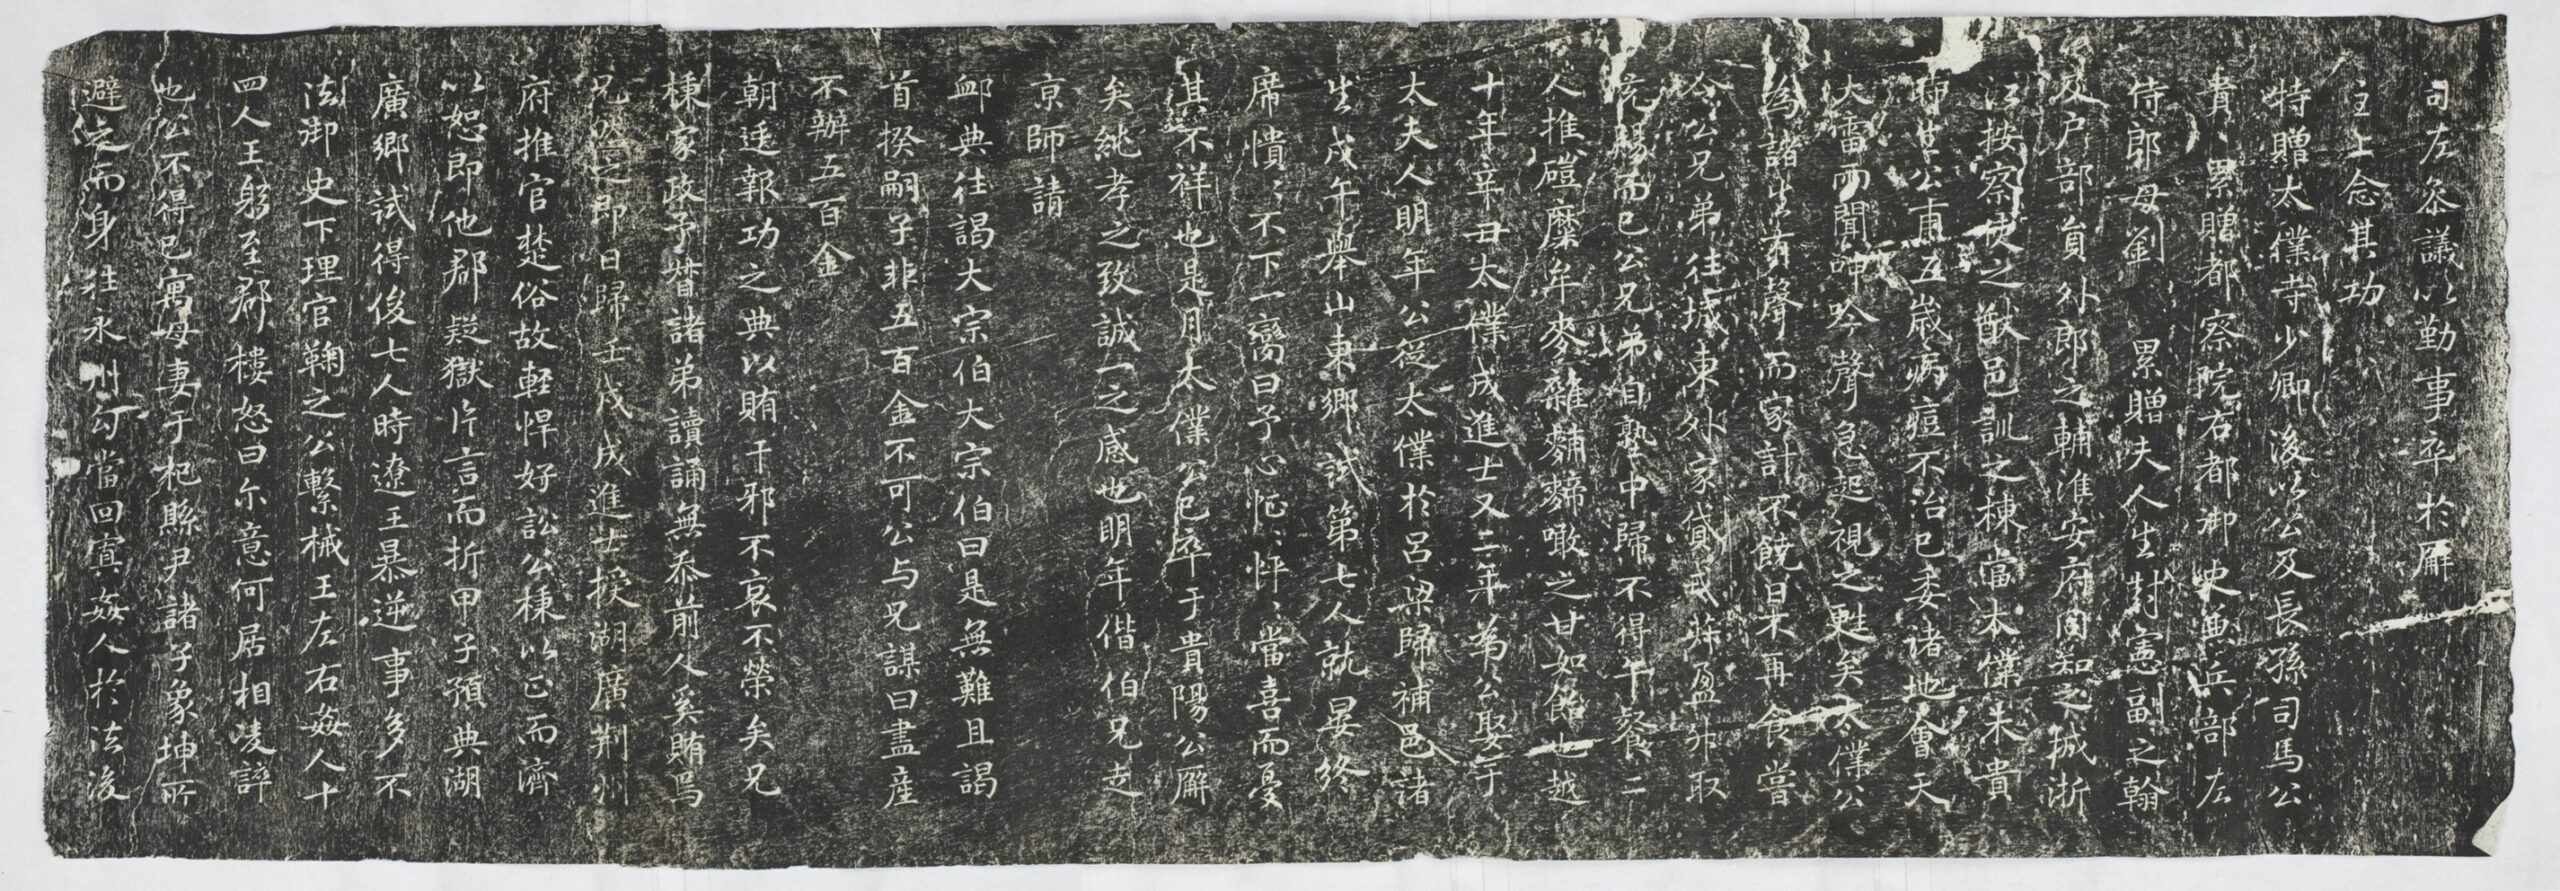 司左叅議以勤事卒於廨
主上念其功
特贈太僕寺少卿後以公及長孫司馬公
貴〻累贈都察院右都御史兼兵部左
侍郎母劉　累贈夫人生尌憲副之翰
及户部員外郎之輔淮安府同知之城浙
江按察使之猷邑訓之棟當太僕未貴
時廿公甫五歲病痘不治已委諸地會天
大雷雨聞呻吟聲急起視之甦矣太僕公
為諸生有聲而家計不饒日未再食嘗
令公兄弟往城東外家貸或升盈升取
充腸而已公兄弟自塾中歸不得午餐二
人推磑糜牟麥雜麱麷噉之甘如飴也越
十年辛丑太僕成進士又二年為公娶于
太夫人明年公從太僕於呂梁歸補邑諸
生戊午舉山東鄉試第七人就晏終
席憒〻不下一臠曰予心怔〻怦〻當喜而憂
其不祥也是月太僕公已卒于貴陽公廨
矣純孝之致誠一之感也明年偕伯兄走
京師請
卹典往謁大宗伯大宗伯曰是無難且謁
首揆嗣子非五百金不可公与兄謀曰盡産
不辦五百金
朝遂報功之典以賄干邪不哀不榮矣兄
棟家政予督諸弟讀誦無忝前人奚賄焉
兄然之即日歸壬戌成進士授湖廣荆州
府推官楚俗故輕悍好訟公棟以正而濟
以恕即他郡疑獄片言而折甲子預典湖
廣鄉試得俊七人時遼王暴逆事多不
法御史下理官鞠之公繫械王左右姦人十
四人王躬至郡樓怒曰尔意何居相凌誶
也公不得已寓母妻于杞縣尹諸子象坤所
避之而身往永州勾當回寘姦人於法後